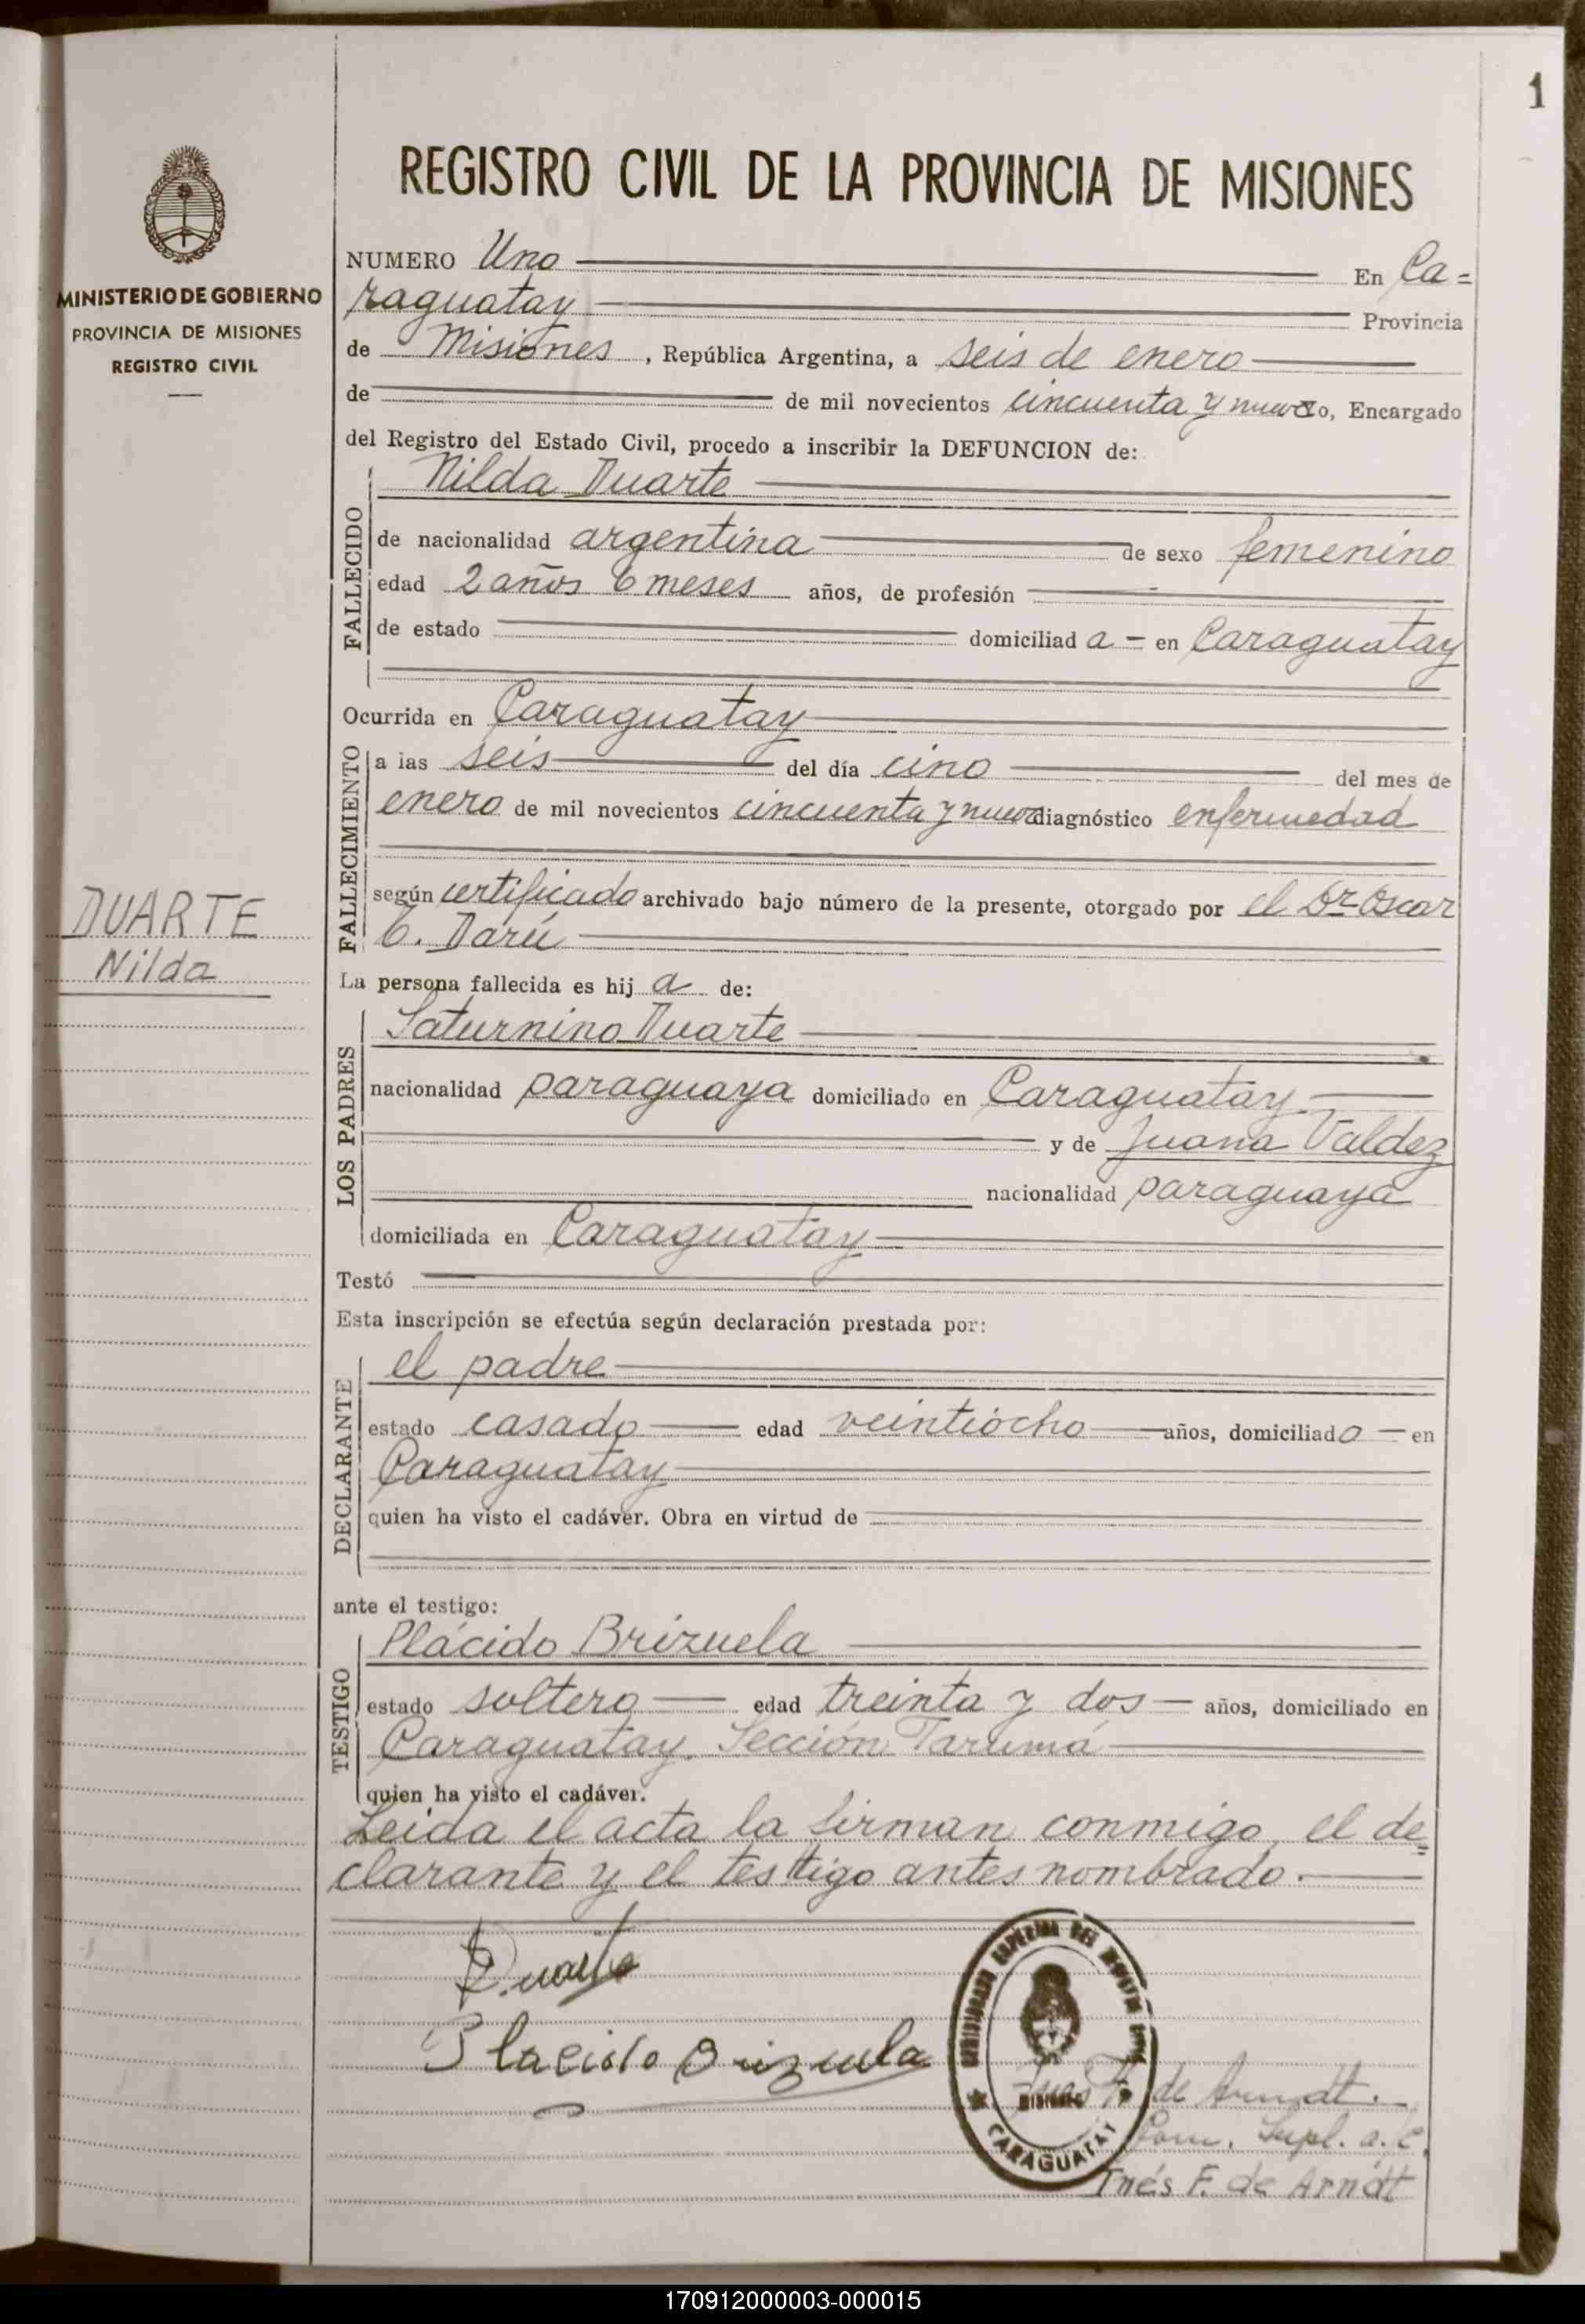 1
REGISTRO CIVIL DE LA PROVINCIA DE MISIONES
MINISTERIO DE GOBIERNO
PROVINCIA DE MISIONES
REGISTRO CIVIL
DUARTE
Nilda
NUMERO Uno En Ca=
raguatay Provincia
de Misiones, República Argentina, a seis de enero
de de mil novecientos cincuenta y nueve yo, Encargado
del Registro del Estado Civil, procedo a inscribir la DEFUNCION de:
Nilda Duarte
FALLECIDO
de nacionalidad argentina de sexo femenino
edad 2 años 6 meses años, de profesión
de estado domiciliad a - en Caraguatay
Ocurrida en Caraguatay
FALLECIMIENTO
a las seis del día cino del mes de
enero de mil novecientos cincuenta y nueve diagnóstico enfermedad
según certificado archivado bajo número de la presente, otorgado por el Dr Oscar
C. Darú
La persona fallecida es hij a de:
LOS PADRES
Saturnino Duarte
nacionalidad paraguaya domiciliado en Caraguatay
y de Juana Valdez
nacionalidad paraguaya
domiciliada en Caraguatay
Testó
Esta inscripción se efectúa según declaración prestada por:
DECLARANTE
el padre
estado casado edad veintiocho años, domiciliado - en
Caraguatay
quien ha visto el cadáver. Obra en virtud de
ante el testigo:
TESTIGO
Plácido Brizuela
estado soltero edad treinta y dos - años, domiciliado en
Caraguatay. Sección Tarumá
quien ha visto el cadáver.
Leida el acta la firman conmigo, el de=
clarante y el testigo antes nombrado.
Duarte
Placido Brizuela
CARAGUATAY
MISIONES
F. de Arndt.
Com. Supl. a. C.
Inés F. de Arndt
170912000003-000015